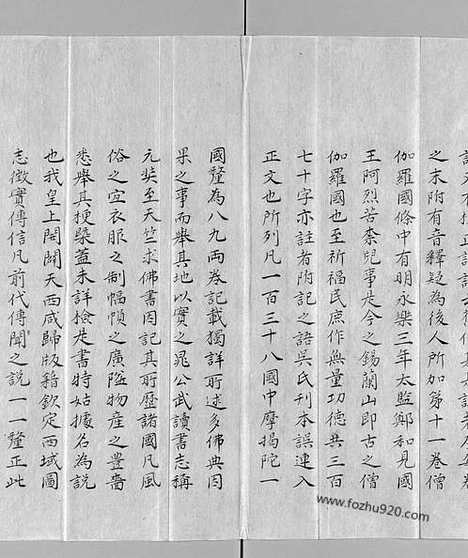 之末附有音釋疑為後人所加第十一卷僧
伽羅國條中有明永樂三年太監鄭和見國
王阿烈苦柰兒事是今之錫蘭山即古之僧
伽羅國也至祈福民庶作無量功德共三百
七十字亦註者附記之語吳氏刊本誤連入
正文也所列凡一百三十八國中摩揭陀一
國釐為八九兩卷記載獨詳所述多佛典因
果之事而舉其地以實之晁公武讀書志稱
元奘至天竺求佛書因記其所歷諸國凡風
俗之宜衣服之制幅幀之廣隘物産之豐嗇
悉舉其梗槩蓋未詳檢是書特姑據名為說
也我皇上開闢天西咸歸版籍欽定西域圖
志徵實傳信凡前代傳聞之說一一釐正此
www.fozhu920.com